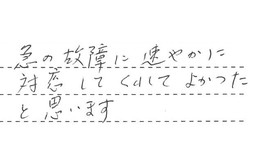 急の故障に速やかに
対応してくれてよかった
と思います